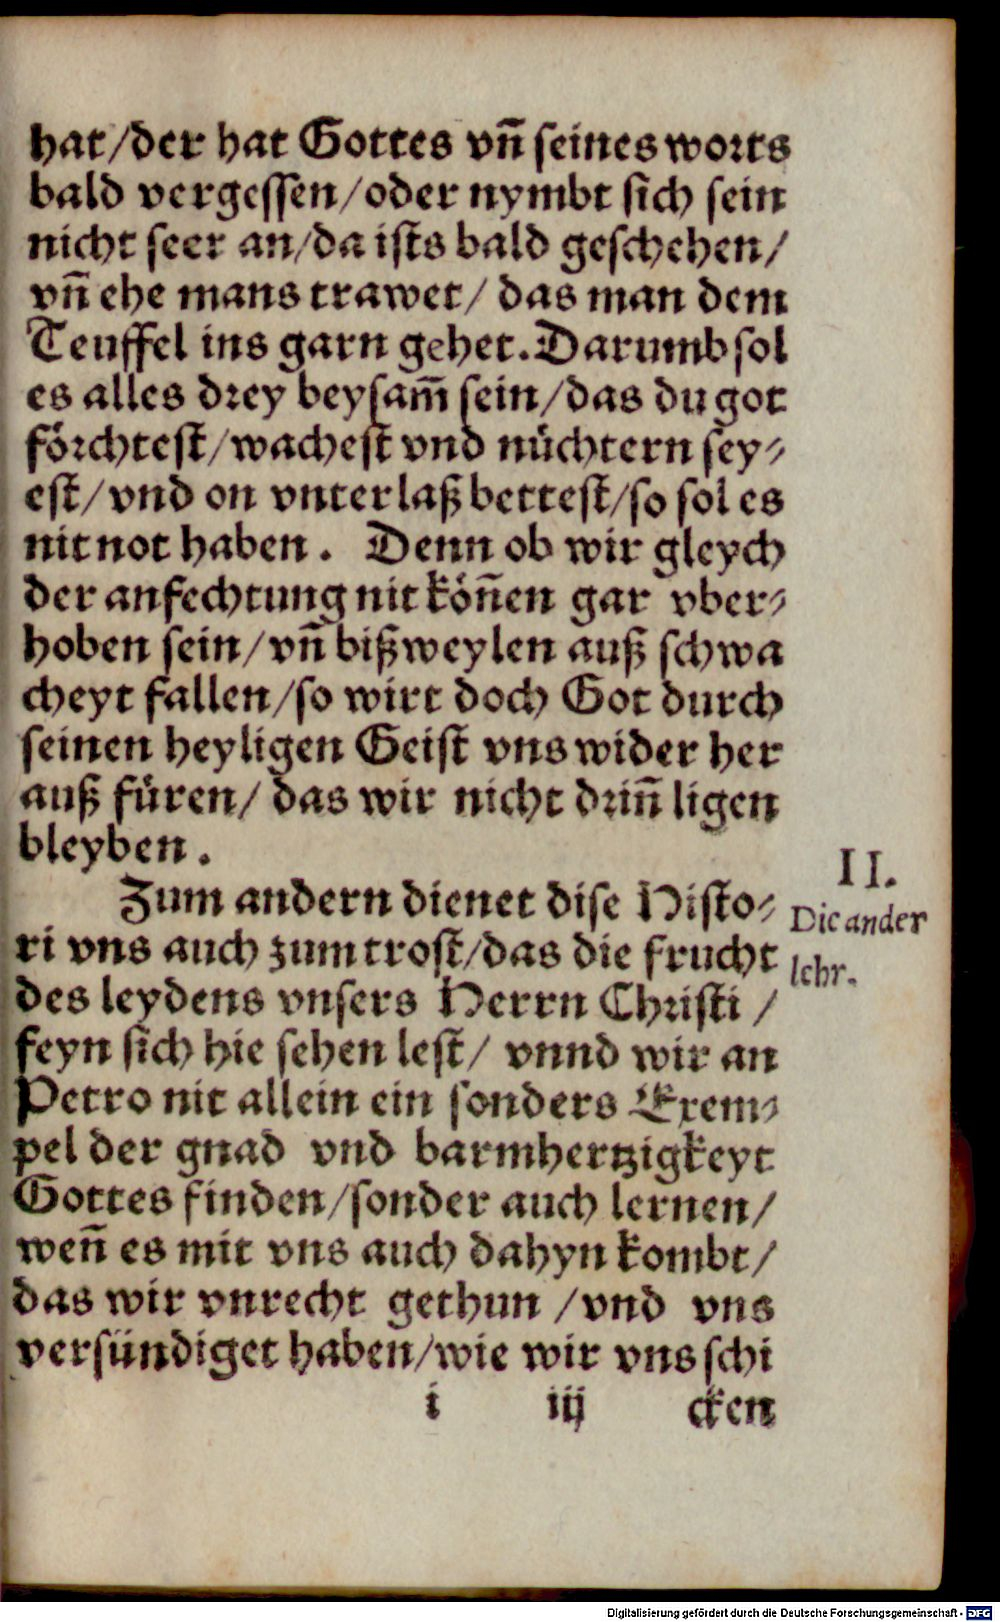 hat/der hat Gottes vñ seines worts
bald vergessen/oder nymbt sich sein
nicht seer an/da ists bald geschehen/
vñ ehe mans trawet/ das man dem
Teuffel ins garn gehet. Darumb sol
es alles drey beysam̃ sein/das du got
förchtest/wachest vnd nüchtern sey⸗
est/vnd on vnterlaß bettest/so sol es
nit not haben. Denn ob wir gleych
der anfechtung nit köñen gar vber⸗
hoben sein/vñ bißweylen auß schwa
cheyt fallen/so wirt doch Got durch
seinen heyligen Geist vns wider her
auß füren/ das wir nicht driñ ligen
bleyben.
II.
Zum andern dienet dise Histo⸗
Die ander
ri vns auch zum trost/das die frucht
lehr.
des leydens vnsers Herrn Christi /
feyn sich hie sehen lest/ vnnd wir an
Petro nit allein ein sonders Exem⸗
pel der gnad vnd barmhertzigkeyt
Gottes finden/sonder auch lernen/
weñ es mit vns auch dahyn kombt/
das wir vnrecht gethun /vnd vns
versündiget haben/wie wir vns schi
i iij cken
Digitalisierung gefördert durch die Deutsche Forschungsgemeinschaft - DFG